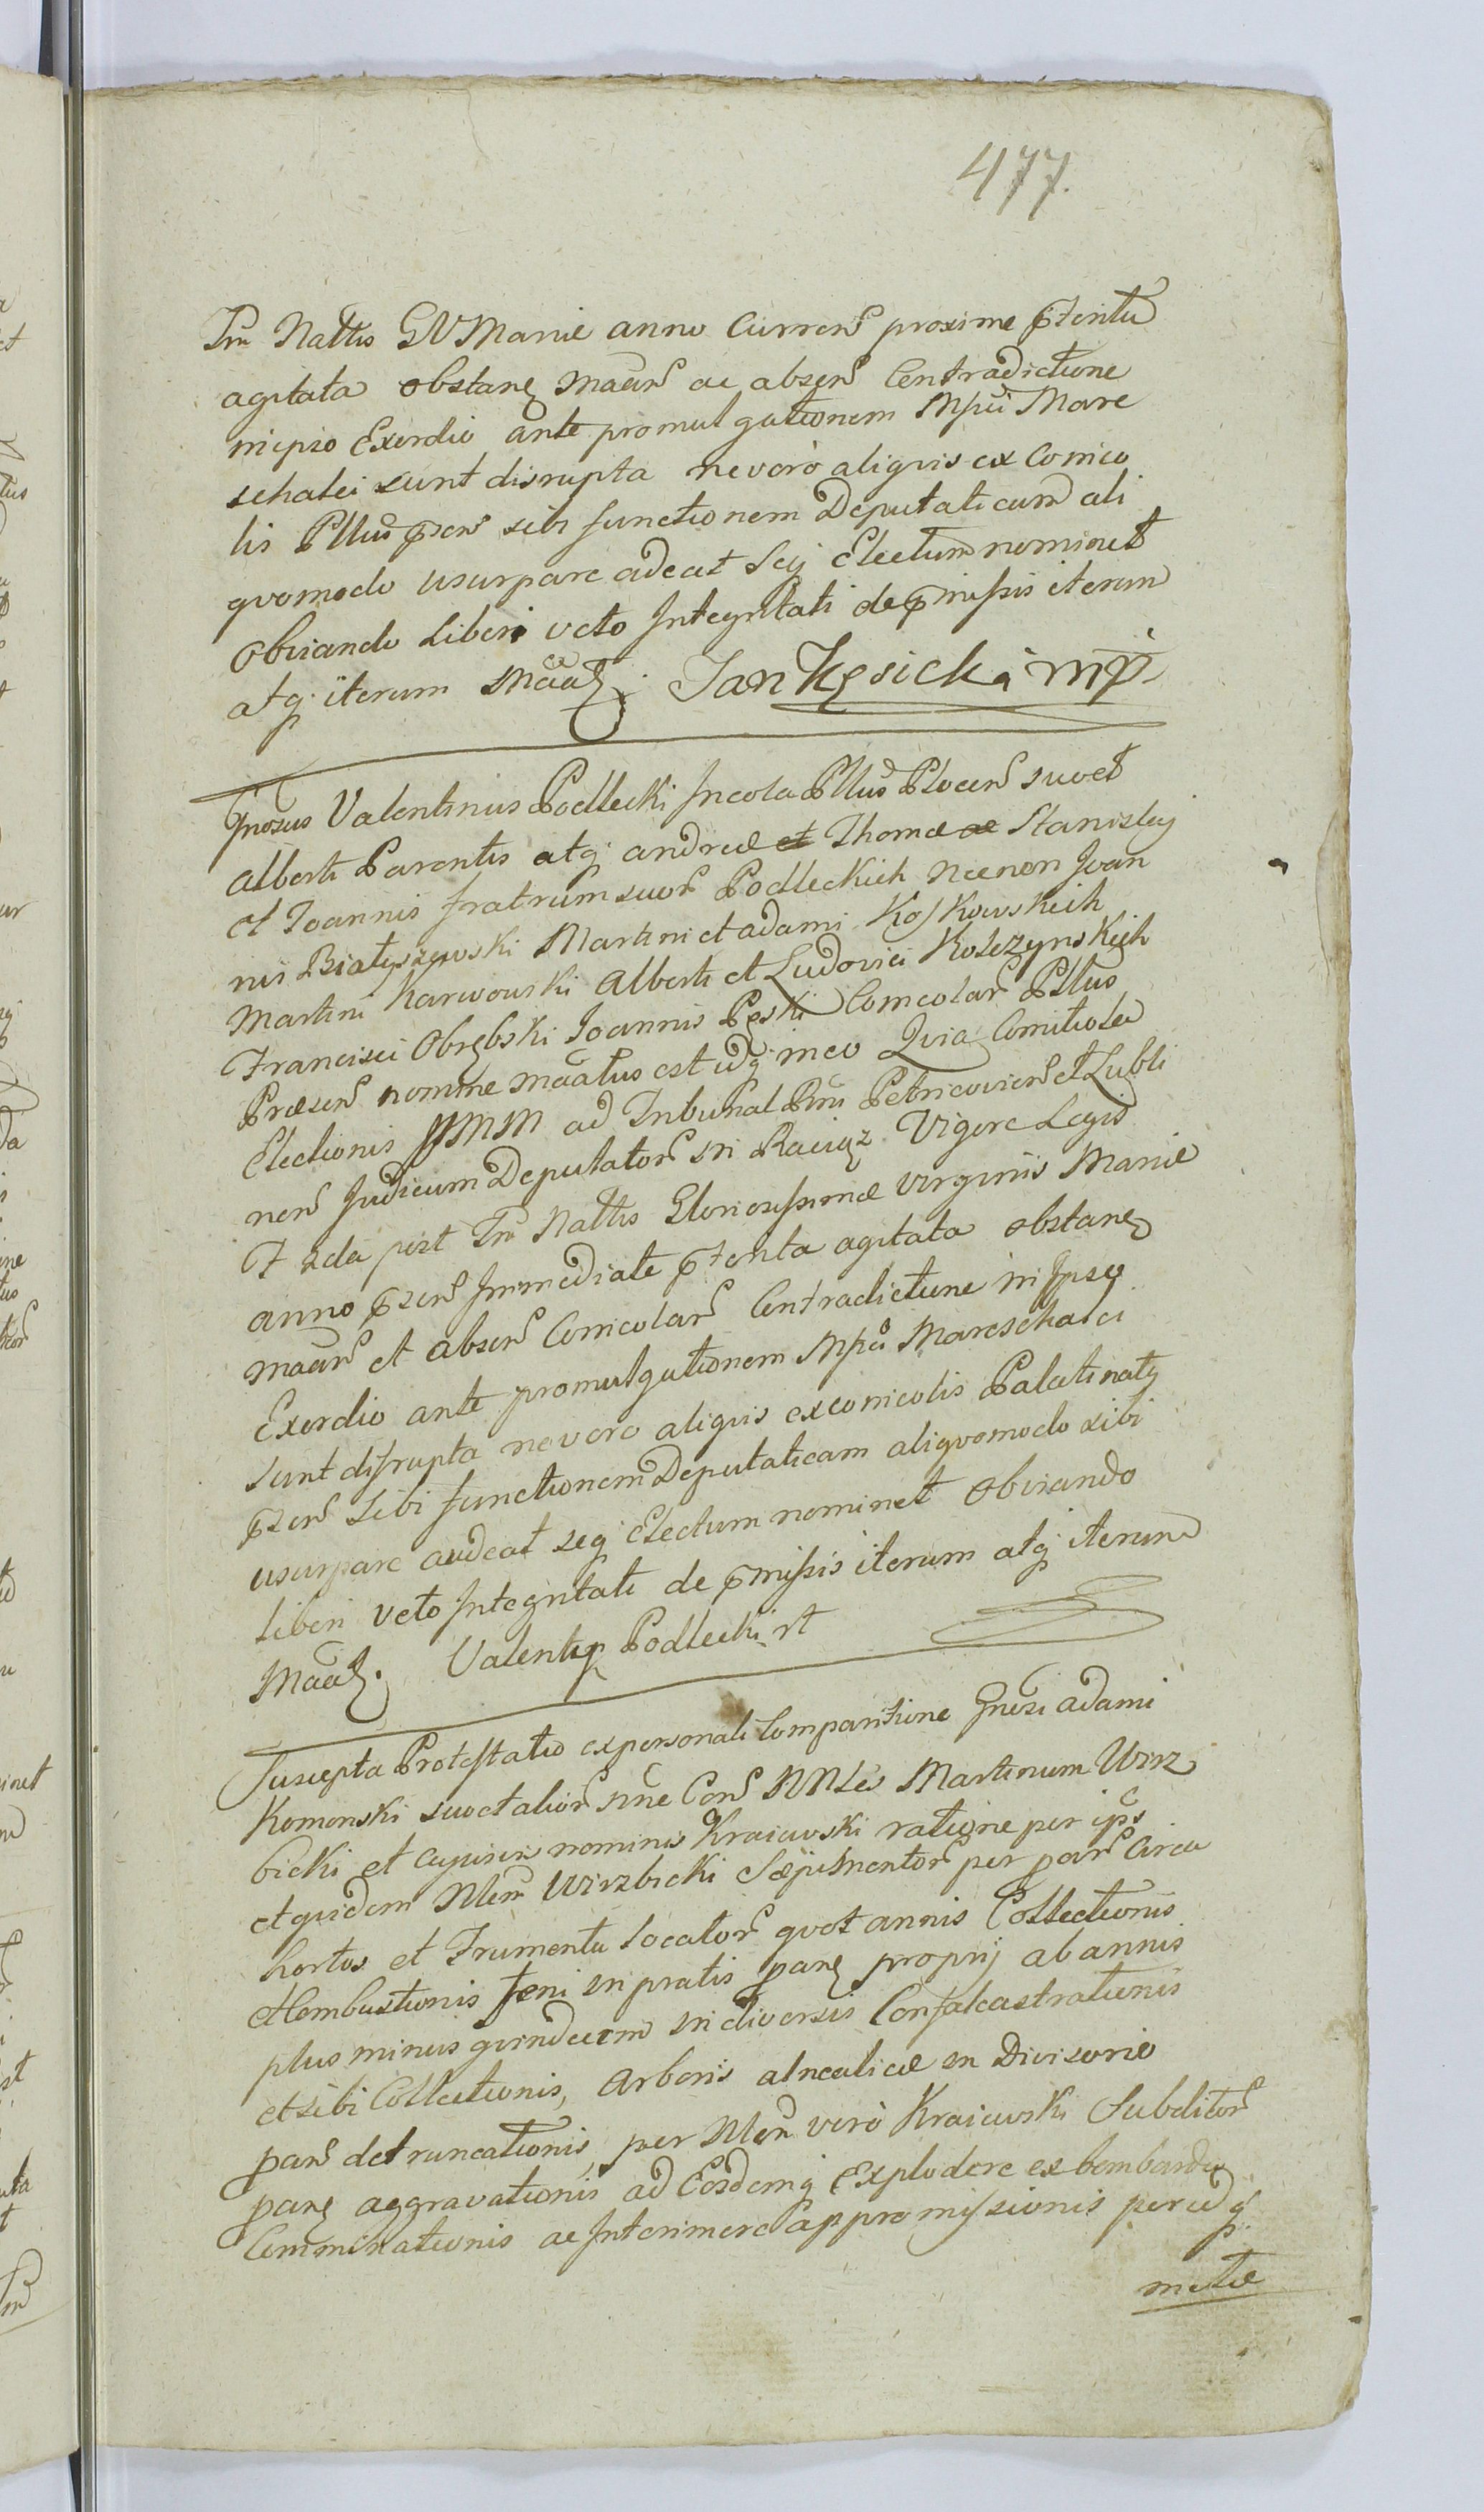 477.
Tm Nattis GVMariæ anno Curren proxime pteritu
agitata obstane maan ac absen Contradictione
in ipso Exordio ante promulgationem Mfci Mare
schalci sunt disrupta ne vero aliquis ex Conico
lis Pttus psen sibi functionem Deputaticam ali
quomodo usurpare adeat seq Electum nominet
Obviando Liberi veto Integritati de pmissis iterum
atq iterum Maat. Jan Kęsicki mp
Gnosus Valentinus Podlecki Incola Pttus Plocen suo et
Alberti Parentis atq Andreæ et Thomæ Stanislaj
et Joannis fratrum suor Podleckich Necnon Joan
nis Białyszewski Martini et Adami Koskowskich
Martini Karwowski Alberti et Ludovici Kolczynskich
Francisci Obrębski Joannis Pęski Comcolar Pttus
Præsen nomine maatus est idq in eo Quia Comitiola
Electionis JJMM ad Tribunal Rni Petricovien et Lubli
nen Judicum Deputator in Raciąz Vigore Legis
F 2da post Fm Nattis Gloriosissimæ Virginis Mariæ
anno psen Immediate pterita agitata obstane
maan et absen Conicolar Contradictione in Ipso
Exordio ante promulgationem Mfci Mareschalci
sunt disrupta ne vero aliquis ex conicolis Palatinatq
psen sibi functionem Deputaticam aliquomodo sibi
usurpare audeat seq Electum nominet Obviando
Liberi veto Integritati de pmissis iterum atq iterum
Maat. Valenty Podlecki
Suscepta Protestatio ex personali Comparitione Gnosi Adami
Komonski suo et alior nne Con NNles Martinum Wirz
bicki et cujusvis nominis Kraiewski ratione per ips
et quidem Nlem Wirzbicki Sæpimentor per par Circa
hortos et Frumenta locator quot annis Collectionis
et Combustionis feni in pratis pare proprij ab annis
plus minus quindecim in diversis Confalcastrationis
et sibi Collectionis, Arboris alnealicæ in Divisorio
par detruncationis, per Nlem verò Kraiewski Subditor
pare aggravationis ad Eosdemq Explodere ex bombardis
Comminationis ac Interimere appromissionis per idq
metæ